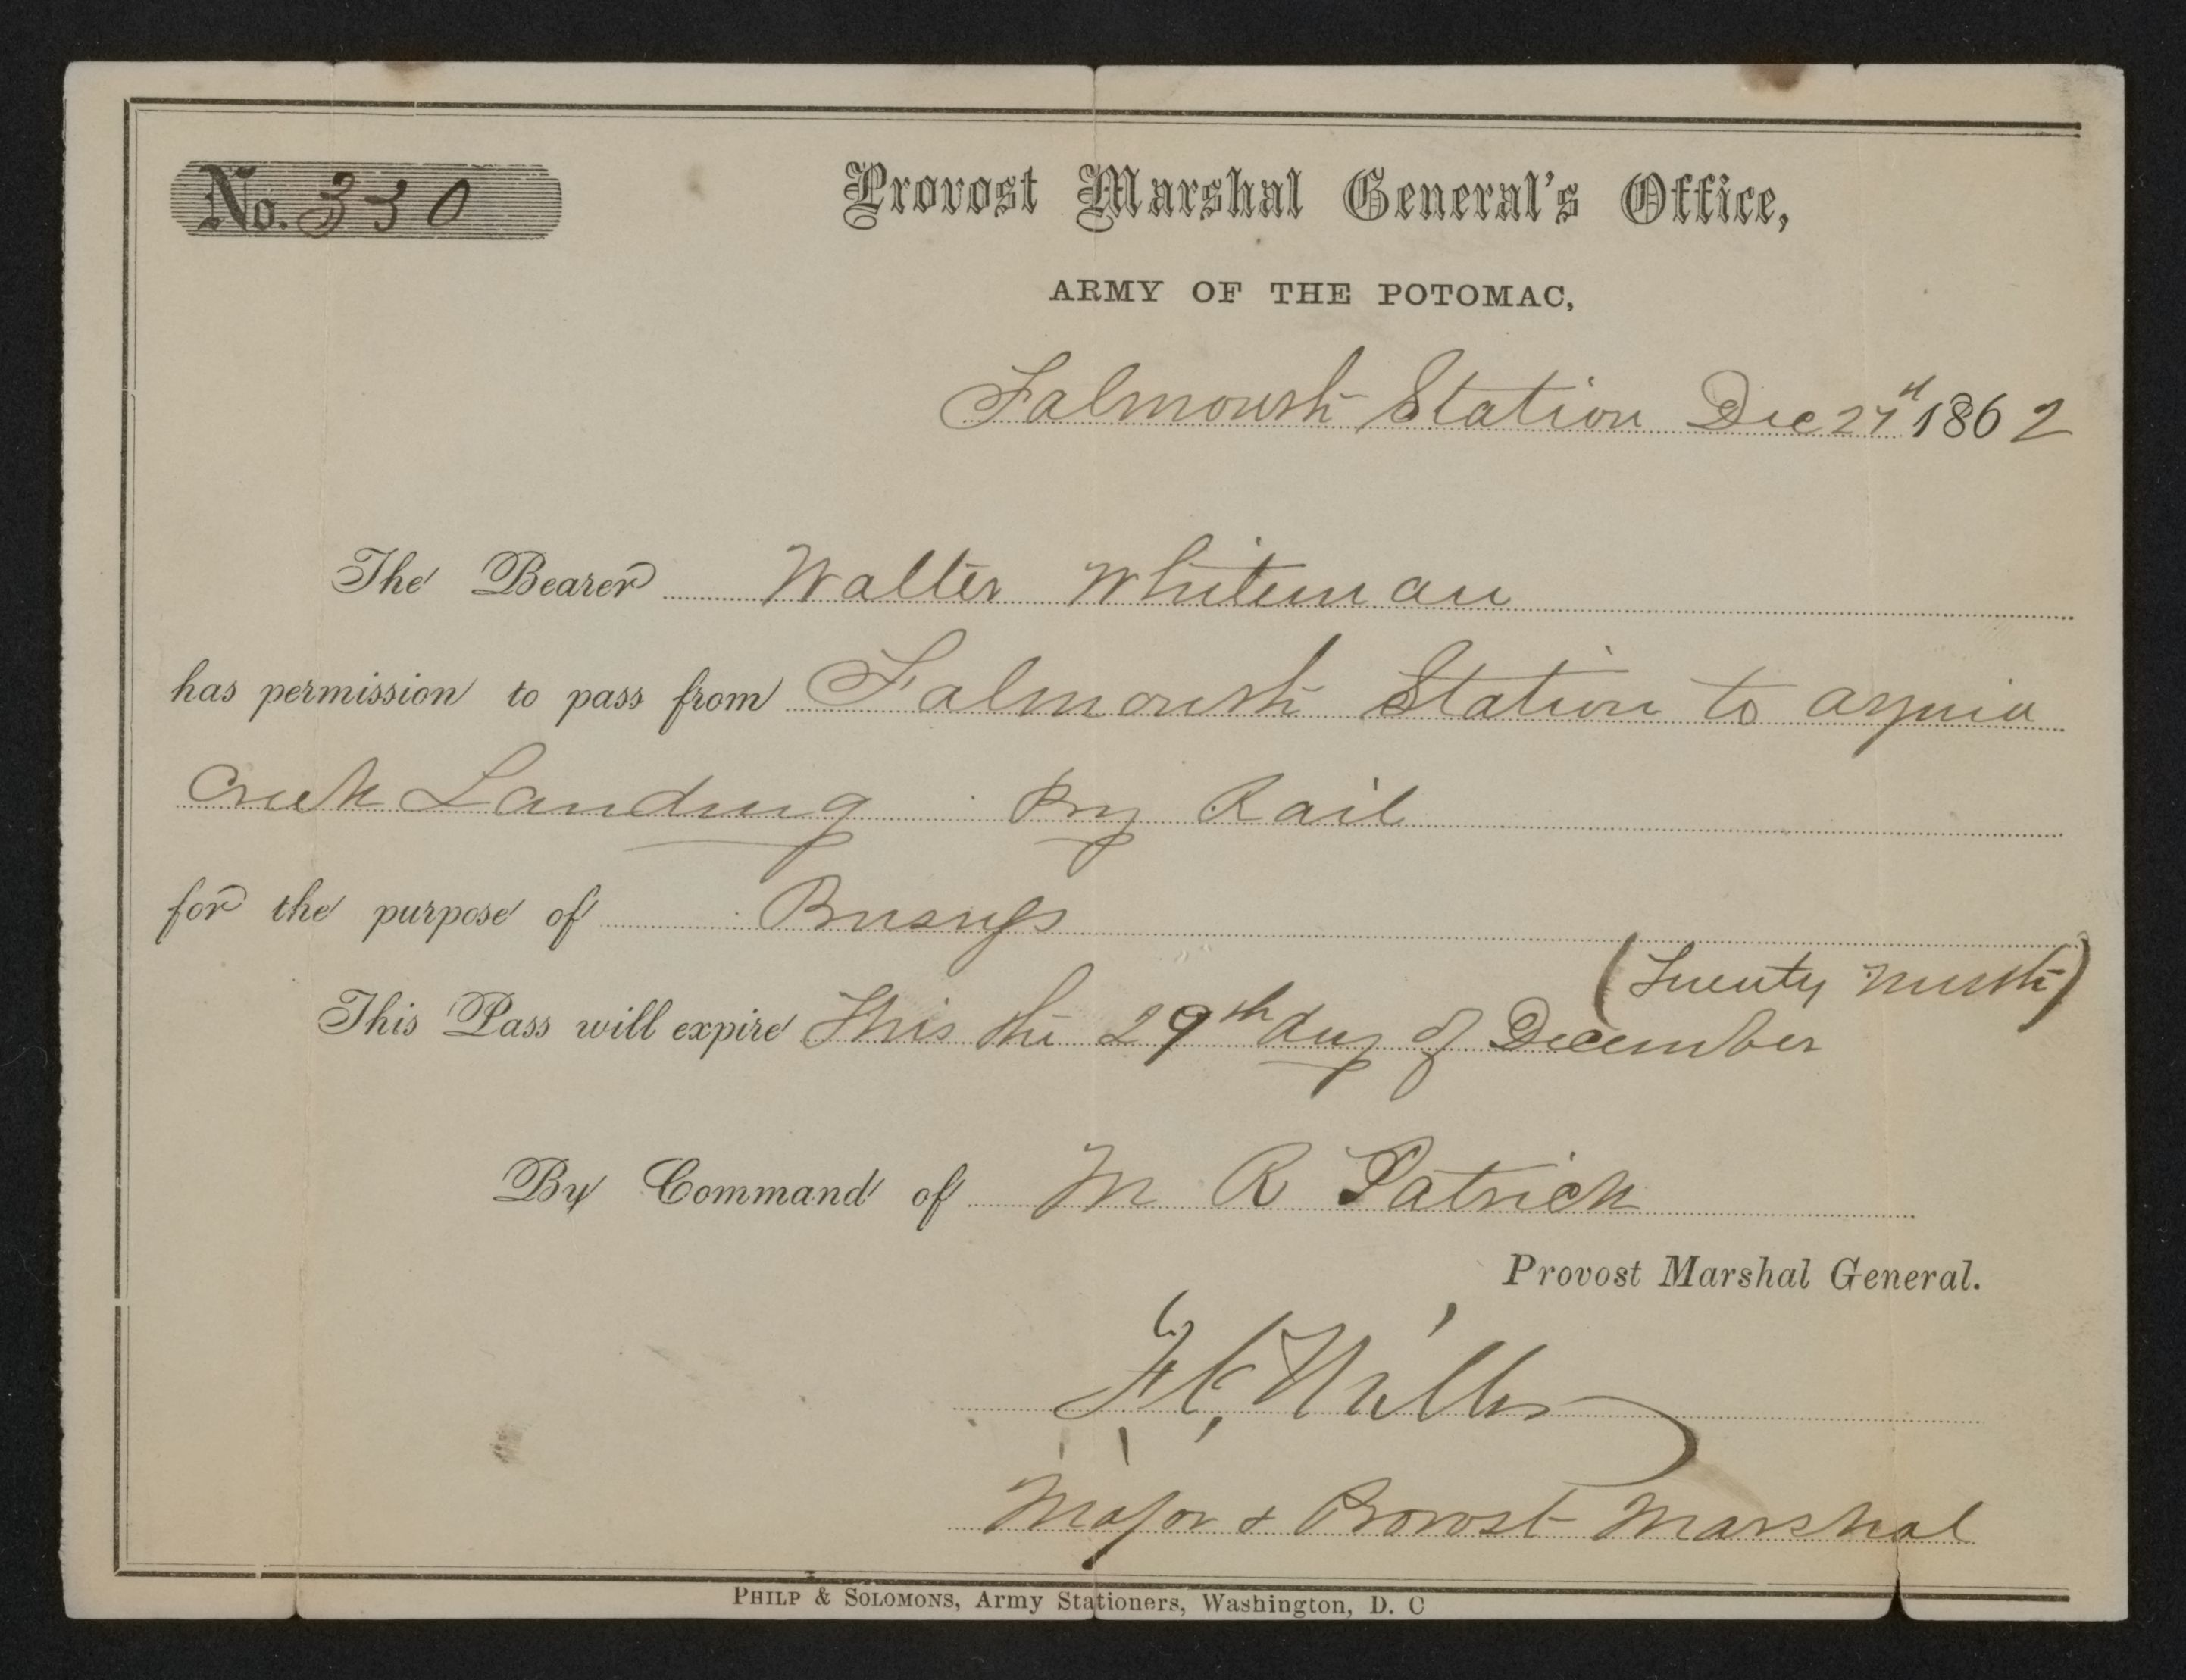 No. 330
Provost Marshal General's Office,
ARMY OF THE POTOMAC,
Falmouth Station Dec 27th 1862
The Bearer Walter Whiteman
has permission to pass from Falmouth Station to aquia
Creek Landing By Rail
for the purpose of Business
(Twenty Ninth)
This Pass will expire This the 29th day of December
By Command of M R Patrick
Provost Marshal General.
Miller
Major & Provost Marshal
PHILP & SOLOMONS, Army Stationers, Washington, D. C